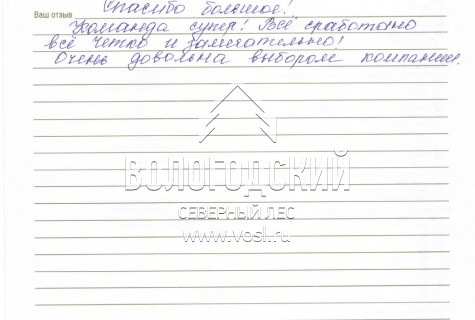 Спасибо большое!
Ваш отзыв
Команда супер! Всё сработано
всё четко и замечательно!
Очень довольна выбором компании.
ВОЛОГОДСКИЙ
СЕВЕРНЫЙ ЛЕС
www.vosl.ru